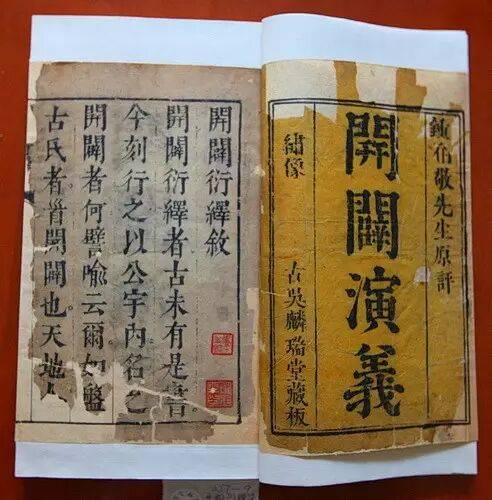 鍾伯敬先生原評
開闢演義
繡像
古吳麟瑞堂藏板
開闢衍繹敘
開闢衍繹者古未有是書
今刻行之以公宇內名之
開闢者何譬喻云爾如盤
古氏者首開闢也天地人